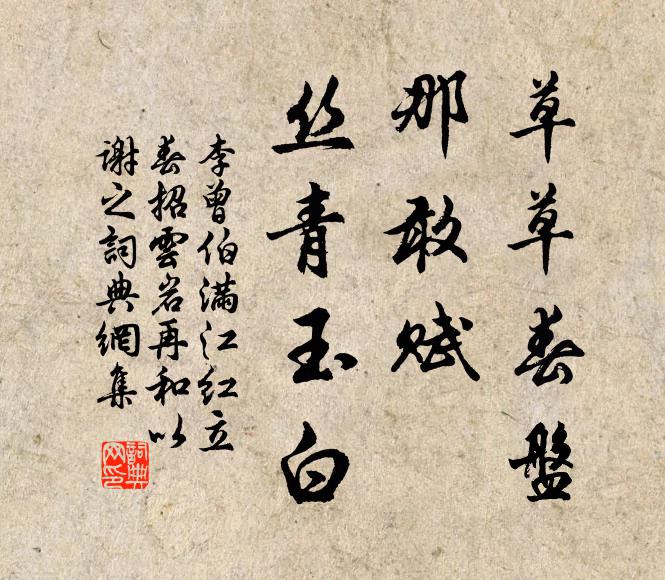 草草春盤
那敢賦
丝青玉白
李曾伯满江红立
春招雲岩再和以
謝之詞典網集
詞典
网印